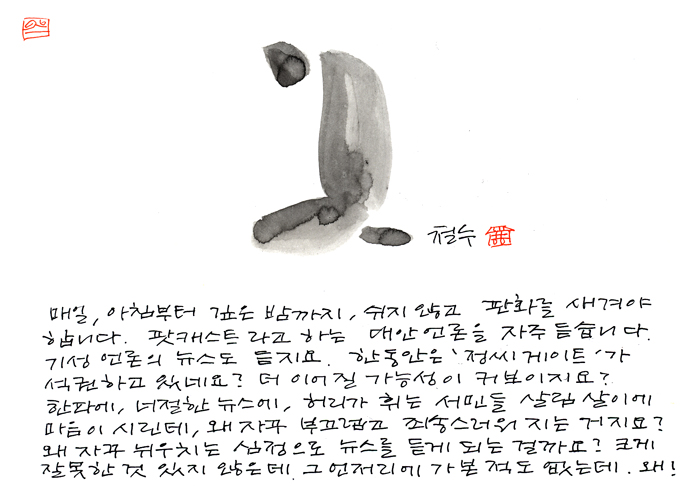 철수
매일, 아침부터 깊은 밤까지, 쉬지 않고 판화를 새겨야
합니다. 팟캐스트라고 하는 대안언론을 자주 듣습니다.
기성 언론의 뉴스도 듣지요. 한동안은 '정씨게이트'가
석권하고 있네요? 더 이어질 가능성이 커보이지요?
한파에, 너절한 뉴스에, 허리가 휘는 서민들 살림살이에
마음이 시린데, 왜 자꾸 부끄럽고 죄송스러워 지는 거지요?
왜 자꾸 뉘우치는 심정으로 뉴스를 듣게 되는 걸까요? 크게
잘못한 것 있지 않은데. 그 언저리에 가본 적도 없는데. 왜!